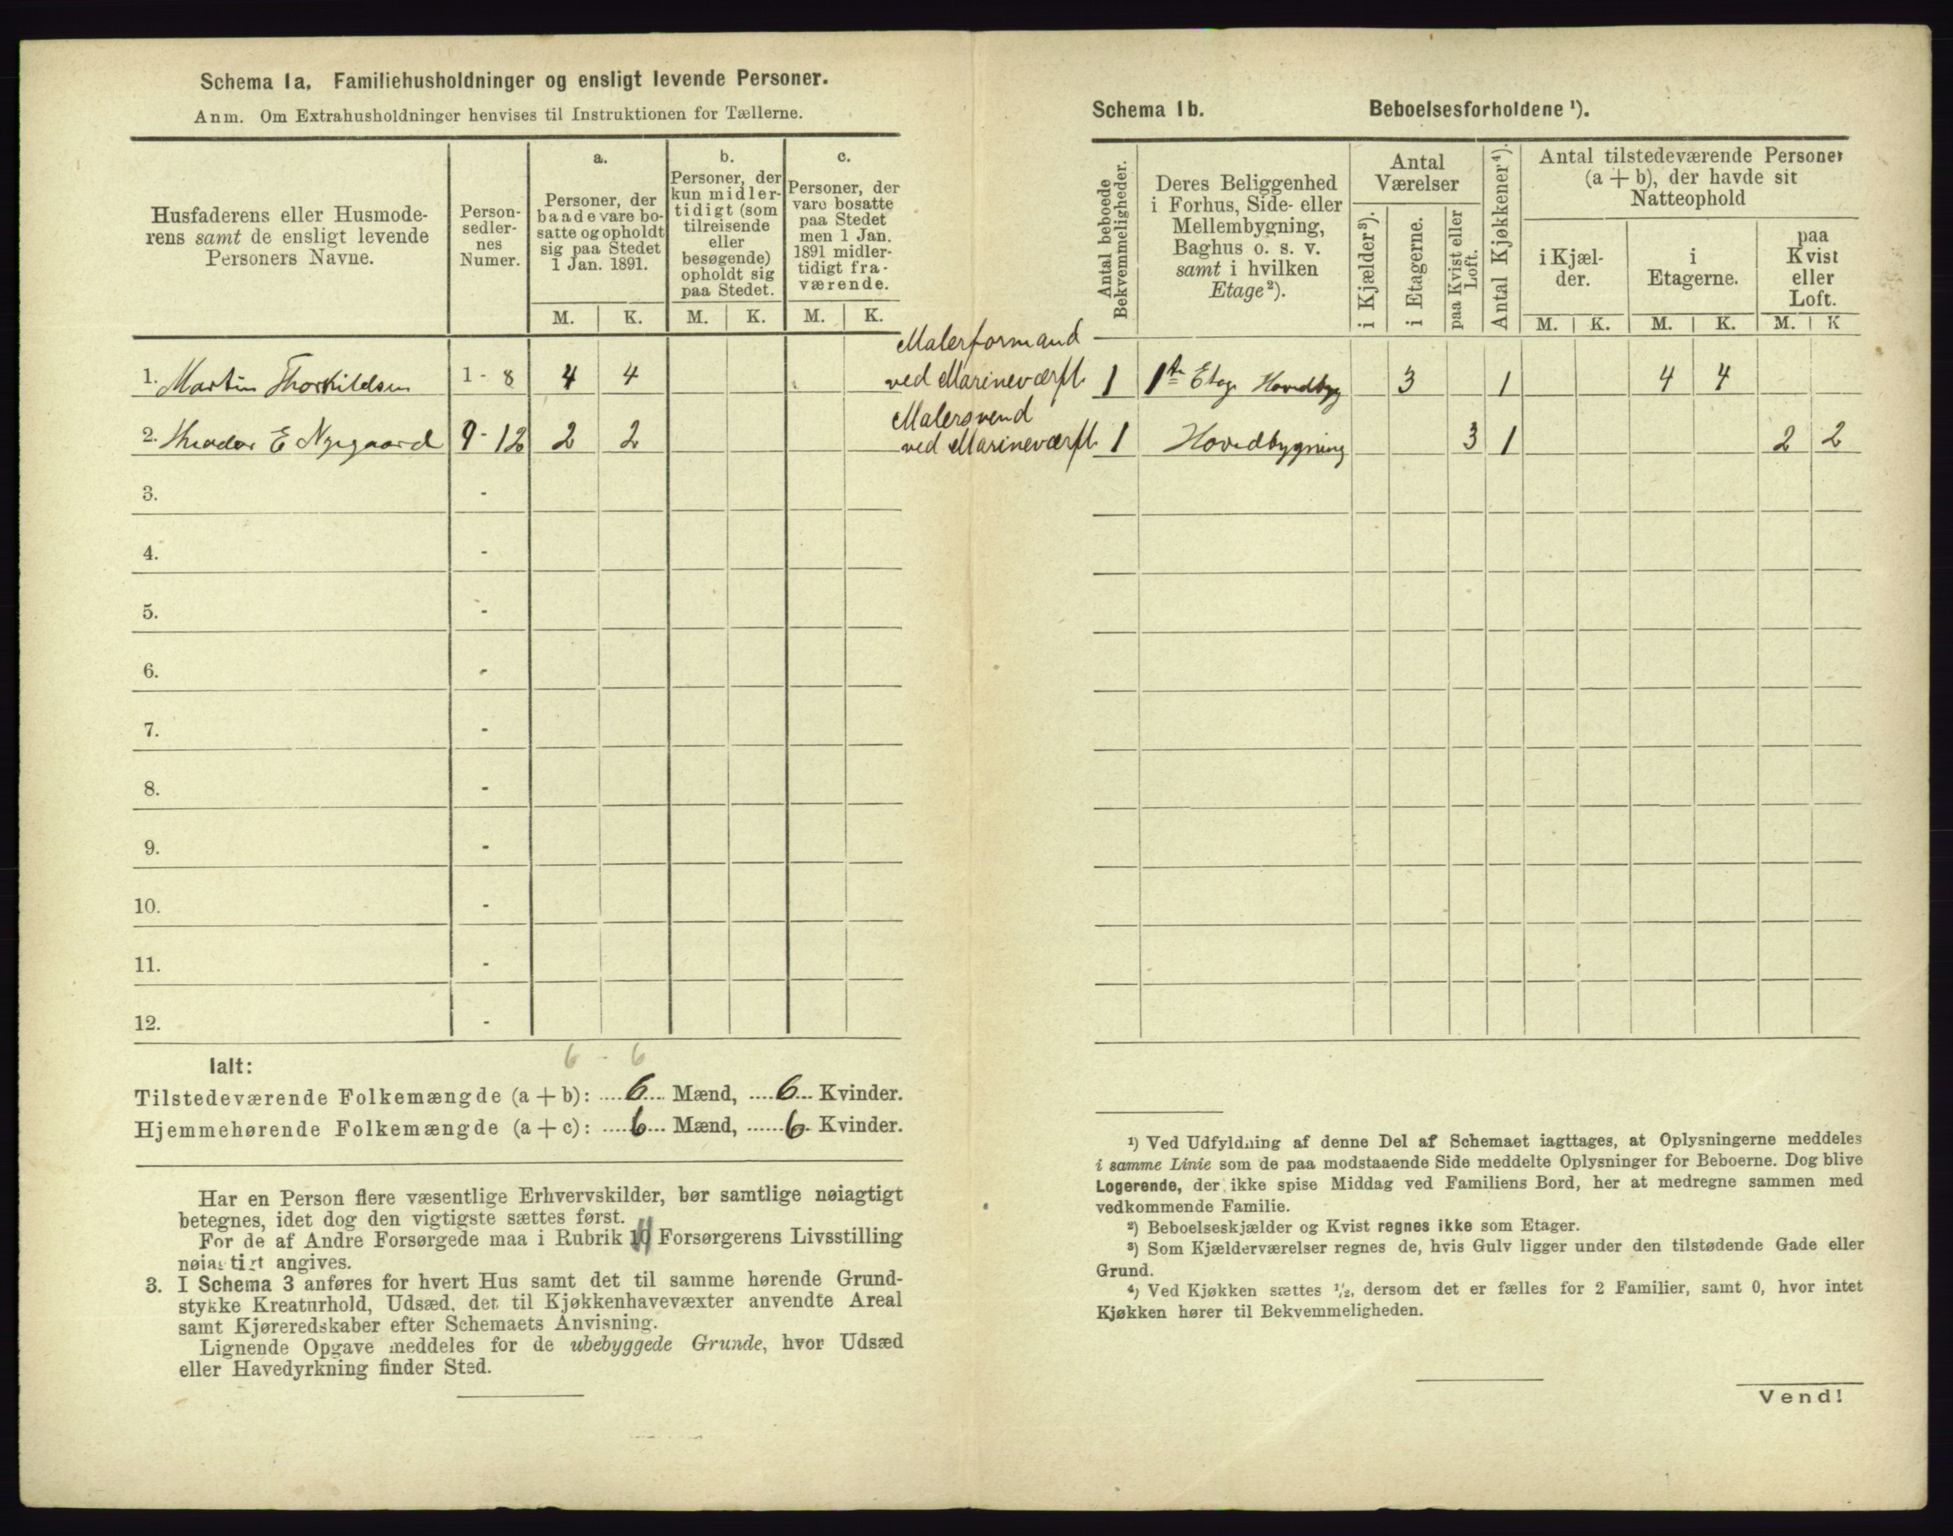 Schema 1a. Familiehusholdninger og ensligt levende Personer.
Anm. Om Extrahusholdninger henvises til Instruktionen for Tællerne.
Husfaderens eller Husmode-
rens samt de ensligt levende
Personers Navne.
Person-
sedler-
nes
Numer.
a.
Personer, der
baade vare bo-
satte og opholdt
sig paa Stedet
1 Jan. 1891.
b.
Personer, der
kun midler-
tidigt (som
tilreisende
eller
besøgende)
opholdt sig
paa Stedet.
c.
Personer, der
vare bosatte
paa Stedet
men 1 Jan.
1891 midler-
tidigt fra-
værende.
M. K. M. K. M. K.
1. Martin Thorkildsen 1 - 8 4 4
2. Theodor E Nygaard 9 - 12 2 2
3. -
4. -
5. -
6. -
7. -
8. -
9. -
10. -
11. -
12. -
Ialt:
6 - 6
Tilstedeværende Folkemængde (a + b): 6 Mænd, 6 Kvinder.
Hjemmehørende Folkemængde (a + c): 6 Mænd, 6 Kvinder.
Har en Person flere væsentlige Erhvervskilder, bør samtlige nøiagtigt
betegnes, idet dog den vigtigste sættes først.
For de af Andre Forsørgede maa i Rubrik 11 Forsørgerens Livsstilling
nøiagtigt angives.
3. I Schema 3 anføres for hvert Hus samt det til samme hørende Grund-
stykke Kreaturhold, Udsæd, det til Kjøkkenhavevæxter anvendte Areal
samt Kjøreredskaber efter Schemaets Anvisning.
Lignende Opgave meddeles for de ubebyggede Grunde, hvor Udsæd
eller Havedyrkning finder Sted.
Schema 1b. Beboelsesforholdene ¹).
Antal beboede
Bekvemmeligheder.
Deres Beliggenhed
i Forhus, Side- eller
Mellembygning,
Baghus o. s. v.
samt i hvilken
Etage²).
Antal
Værelser
i Kjælder³).
i Etagerne.
paa Kvist eller
Loft.
Antal Kjøkkener⁴).
Antal tilstedeværende Personer
(a + b), der havde sit
Natteophold
i Kjæl-
der.
i
Etagerne.
paa
Kvist
eller
Loft.
M. K. M. K. M. K
Malerformand
ved Marineværft 1 1ste Etage Hovedbyg 3 1 4 4
Malersvend
ved Marineværft 1 Hovedbygning 3 1 2 2
¹) Ved Udfyldning af denne Del af Schemaet iagttages, at Oplysningerne meddeles
i samme Linie som de paa modstaaende Side meddelte Oplysninger for Beboerne. Dog blive
Logerende, der ikke spise Middag ved Familiens Bord, her at medregne sammen med
vedkommende Familie.
²) Beboelseskjælder og Kvist regnes ikke som Etager.
³) Som Kjælderværelser regnes de, hvis Gulv ligger under den tilstødende Gade eller
Grund.
⁴) Ved Kjøkken sættes ½, dersom det er fælles for 2 Familier, samt 0, hvor intet
Kjøkken hører til Bekvemmeligheden.
Vend!